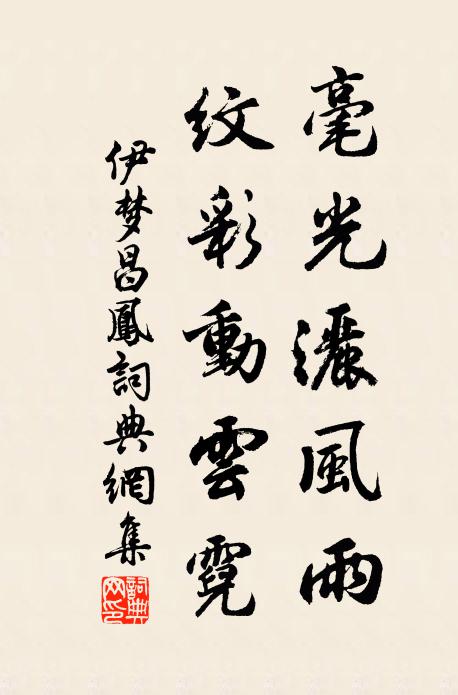 毫光灑風雨
紋彩動雲霓
伊梦昌鳳詞典網集
詞典网印